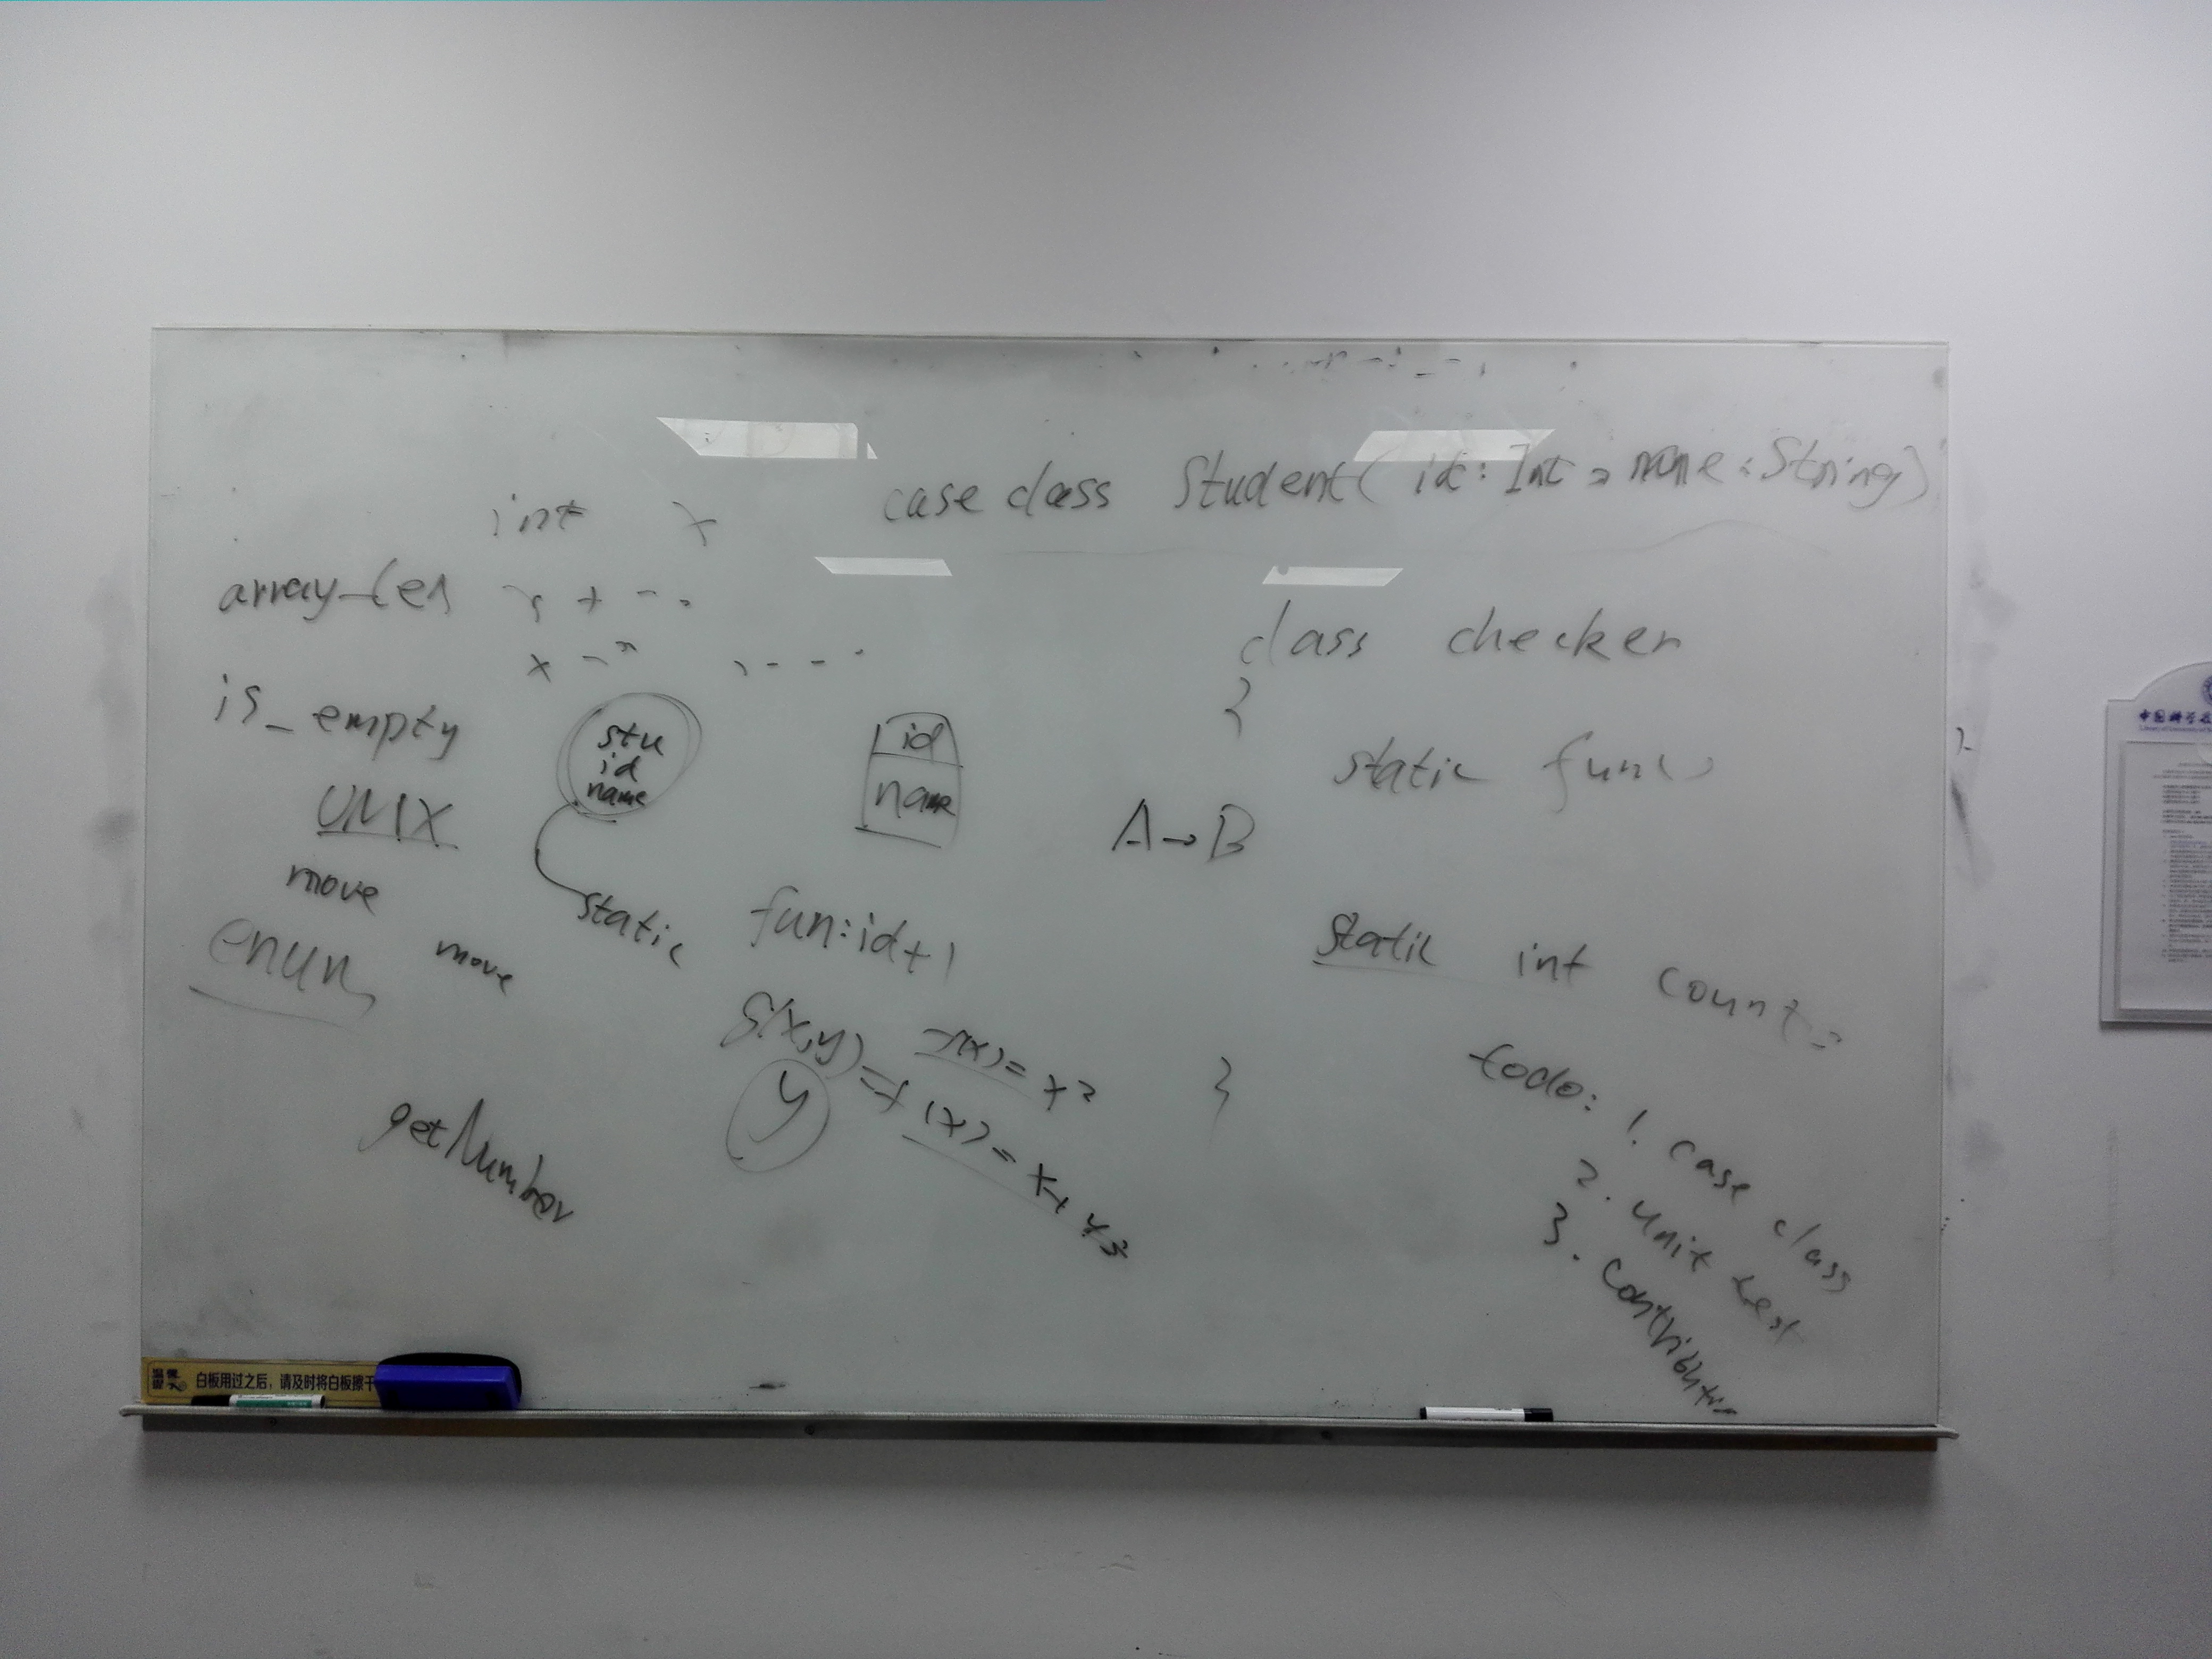 case class Student( id: Int, name: String)
int x
array_len
class checker
{
is_empty
stu
id
name
id
name
static fun()
UNIX
A→B
move
static
fun: id+1
static int count =
enum
move
g(x,y) = f(x) = x+y
f(x) = x²
y
}
todo: 1. case class
2. unit test
3. contribution
getNumber
白板用过之后，请及时将白板擦干
中国科学技